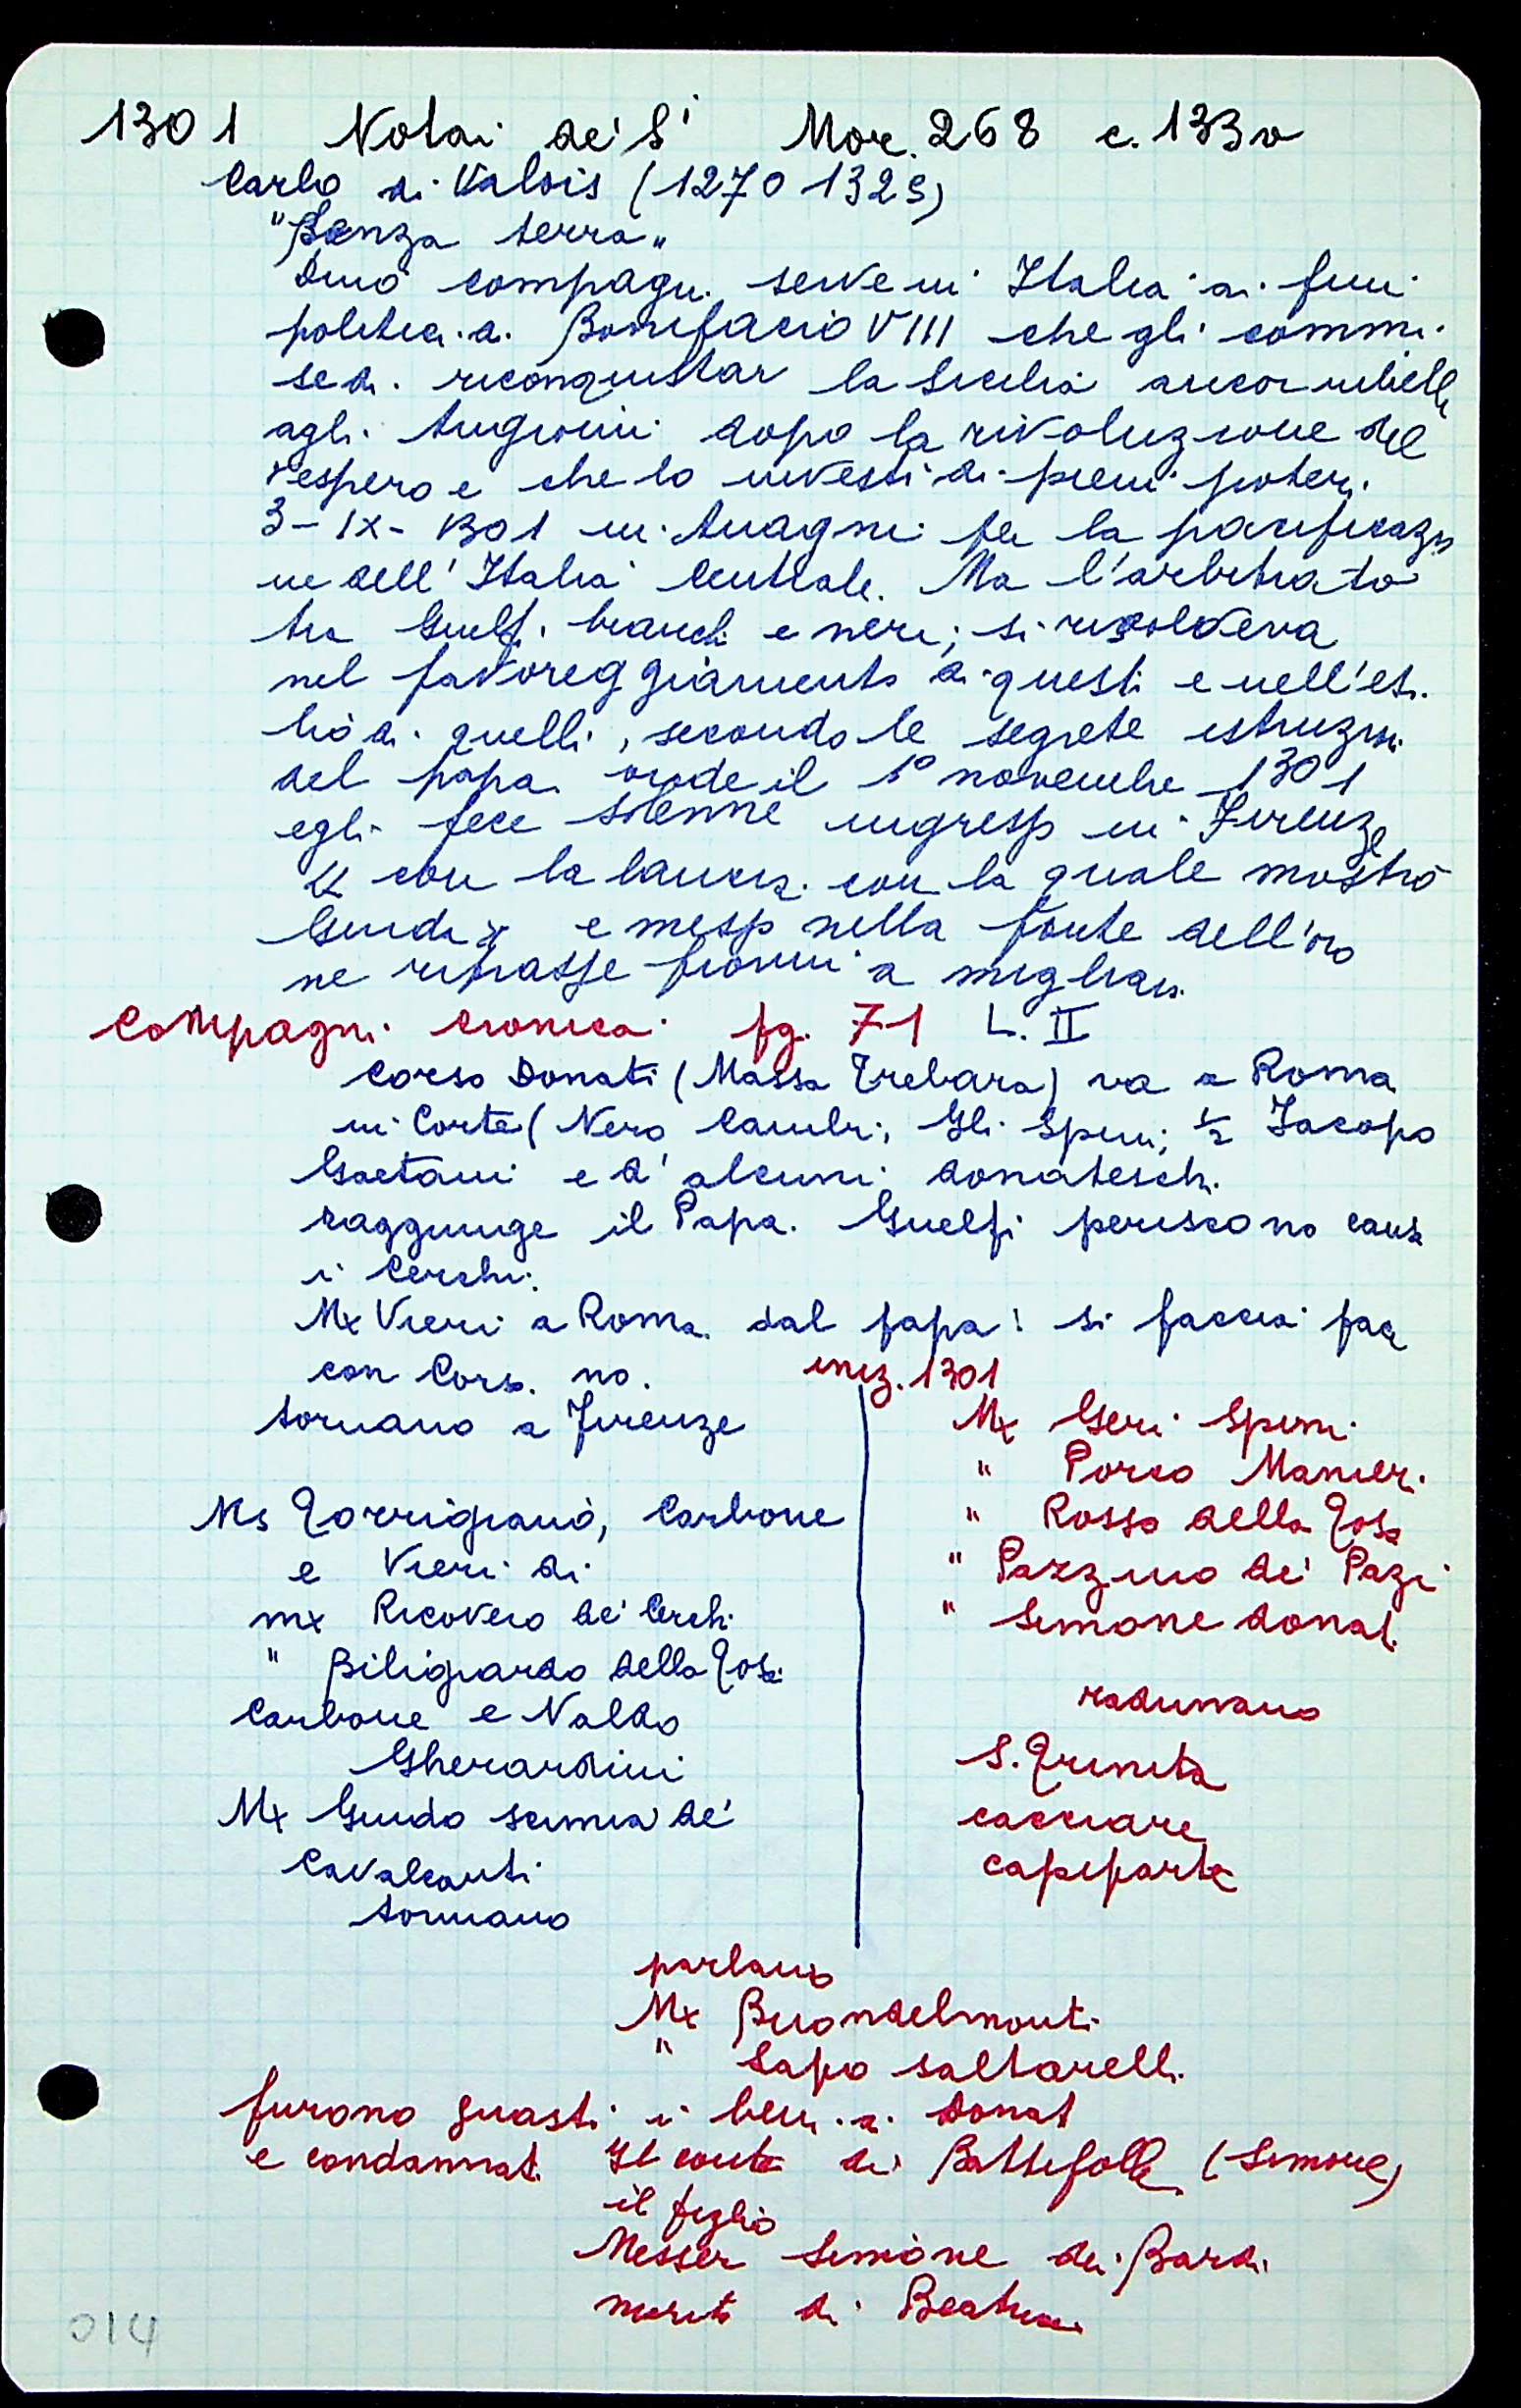 1301 Notai de' S' Mor. 268 c. 133v
Carlo di Valois (1270 1325)
"Senza terra"
Dino Compagni. serve in Italia ai fini
politici. di. Bonifacio VIII che gli commi.
se di. riconquistar la Sicilia ancor ribelle
agli. Angioini dopo la rivoluzione del
Vespero e che lo investi di pieni poteri.
3 - IX - 1301 in Anagni per la pacificazio
ne dell' Italia Centrale. Ma l'arbitrato
tra Guelfi bianchi e neri; si risolveva
nel favoreggiamento di questi e nell'esi.
lio di. quelli, secondo le segrete istruzioni
del papa onde il 1º novembre 1301
egli fece solenne ingresso in Firenze
" con la lancia. con la quale mostrò
Giuda " e messo nella fonte dell'oro
ne ritrasse fiorini a migliaia.
Compagni. Cronica. pg. 71 L. II
Corso Donati (Massa Trebara) va a Roma
in Corte (Nero Cambi, Gli Spini; ½ Jacopo
Gaetani e d' alcuni donateschi.
raggiunge il Papa. Guelfi periscono causa
i Cerchi.
Mx Vieri a Roma. dal papa: si faccia pace
con Corso. no.
tornano a Firenze
Ms Torrigiano, Carbone
e Vieri di
mx Ricovero de' Cerchi
" Biligiardo della Tosa
Carbone e Naldo
Gherardini
Mx Guido scimia de'
Cavalcanti
tornano
iniz. 1301
Mx Geri Spini
" Porco Manieri.
" Rosso della Tosa
" Pazzino de' Pazi
" Simone Donati.
radunano
S. Trinita
cacciare
capiparte
parlano
Mx Buondelmonti
" Lapo saltarelli.
furono guasti i beni. ai. Donat
e condannati. Il conte di Battifolle (Simone)
il figlio
Messer Simone dei Bardi
marito di Beatrice
014